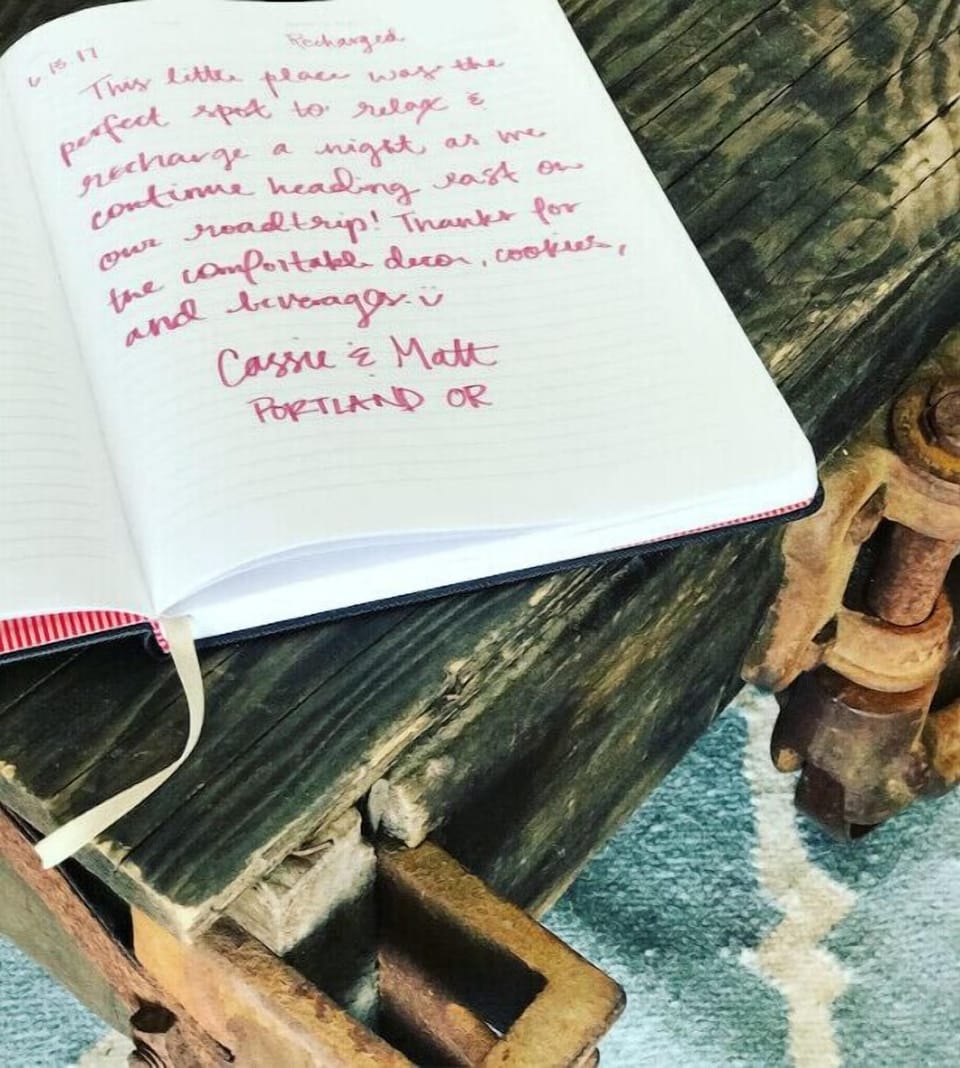 6 13 17 Recharged
This little place was the
perfect spot to relax &
recharge a night as we
continue heading east on
our roadtrip! Thanks for
the comfortable decor, cookies,
and beverages. ü
Cassie & Matt
PORTLAND OR